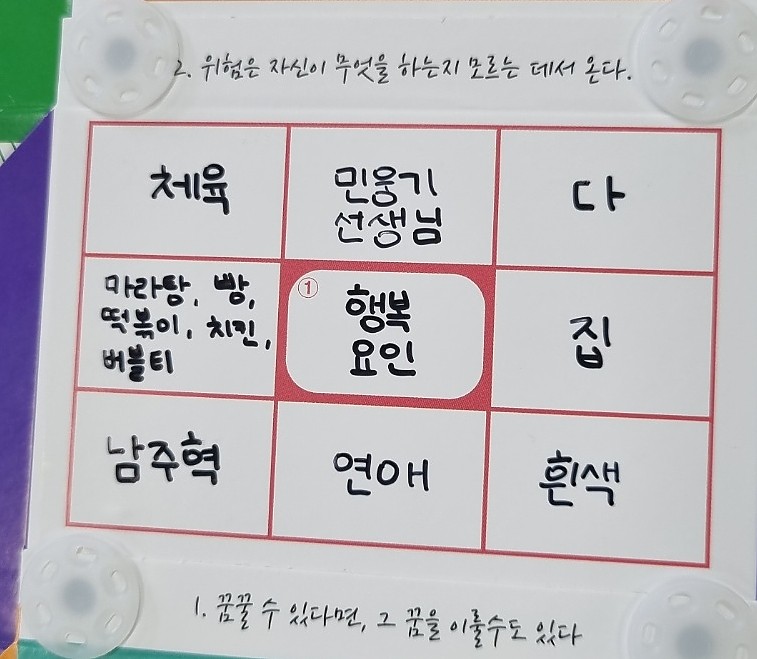 2. 위험은 자신이 무엇을 하는지 모르는 데서 온다.
체육
민웅기
선생님
다
마라탕, 빵,
떡볶이, 치킨,
버블티
①
행복
요인
집
남주혁
연애
흰색
1. 꿈꿀 수 있다면, 그 꿈을 이룰수도 있다